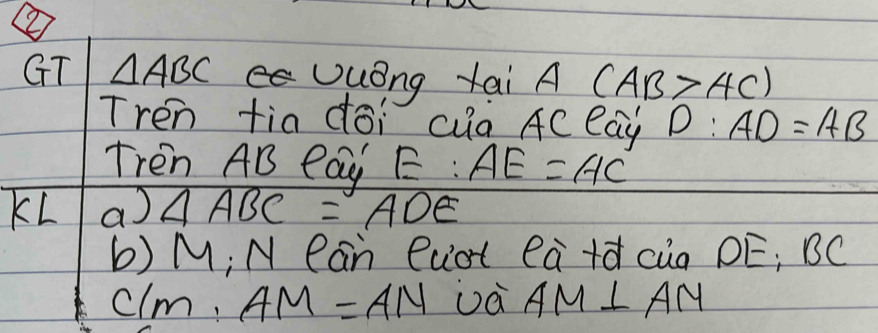 2
GT ΔABC vuông tại A (AB > AC)
Trên tia đối của AC lấy D : AD = AB
Trên AB lấy E : AE = AC
KL a) Δ ABC = ADE
b) M; N lần lượt là tđ của DE; BC
C/m : AM = AN và AM ⊥ AN